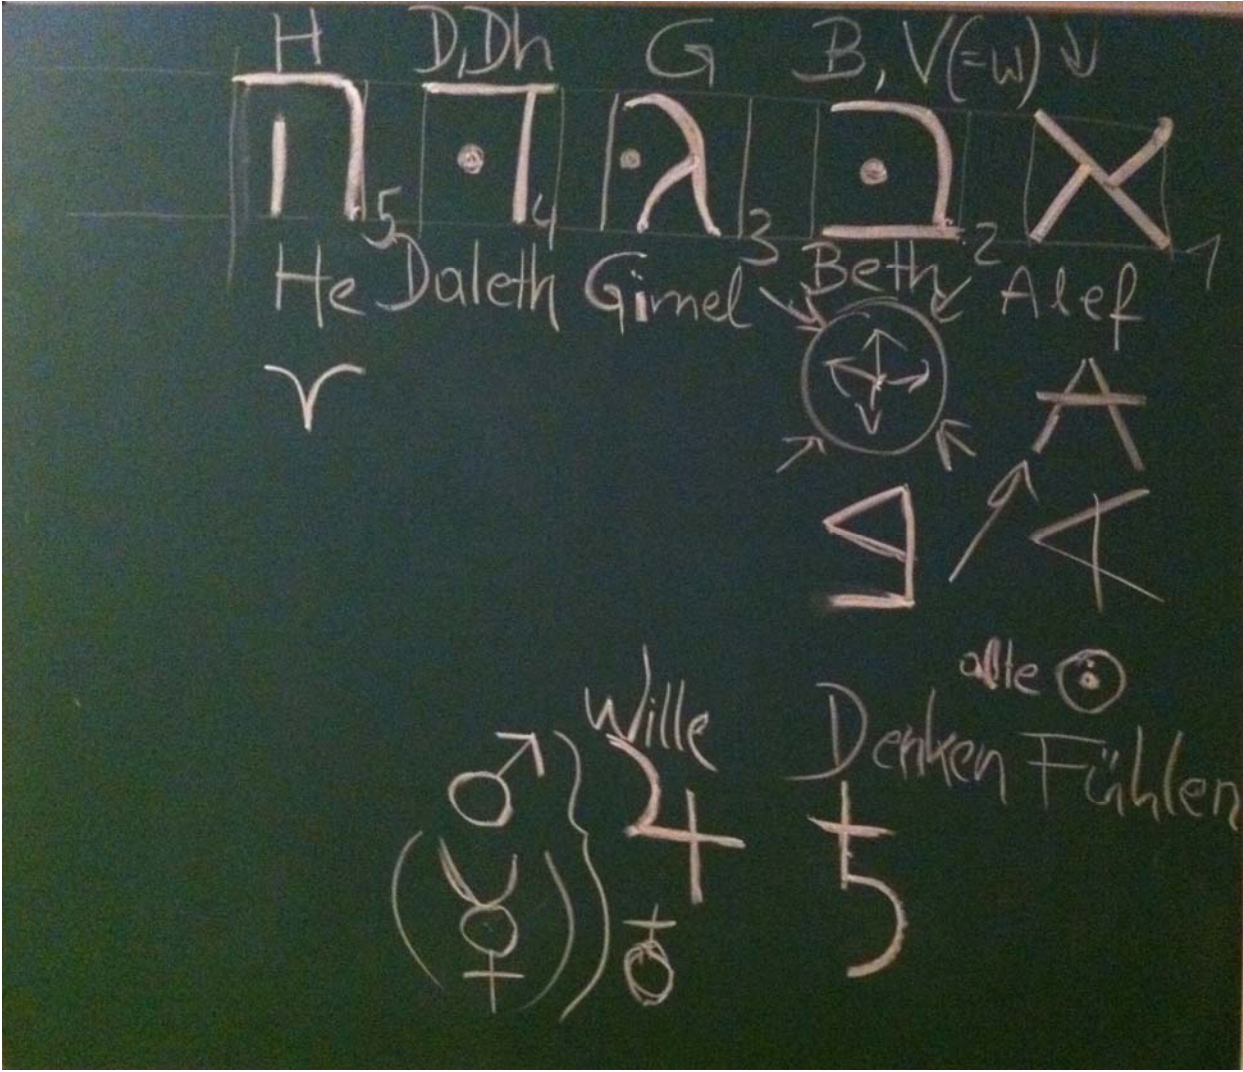 H D,Dh G B, V(=w) ↓
ה דּ גּ בּ א
5 4 3 2 1
He Daleth Gimel Beth Alef
♈ A
alte ☉
Wille Denken Fühlen
♂ ♃ ♄
(☿) ♁